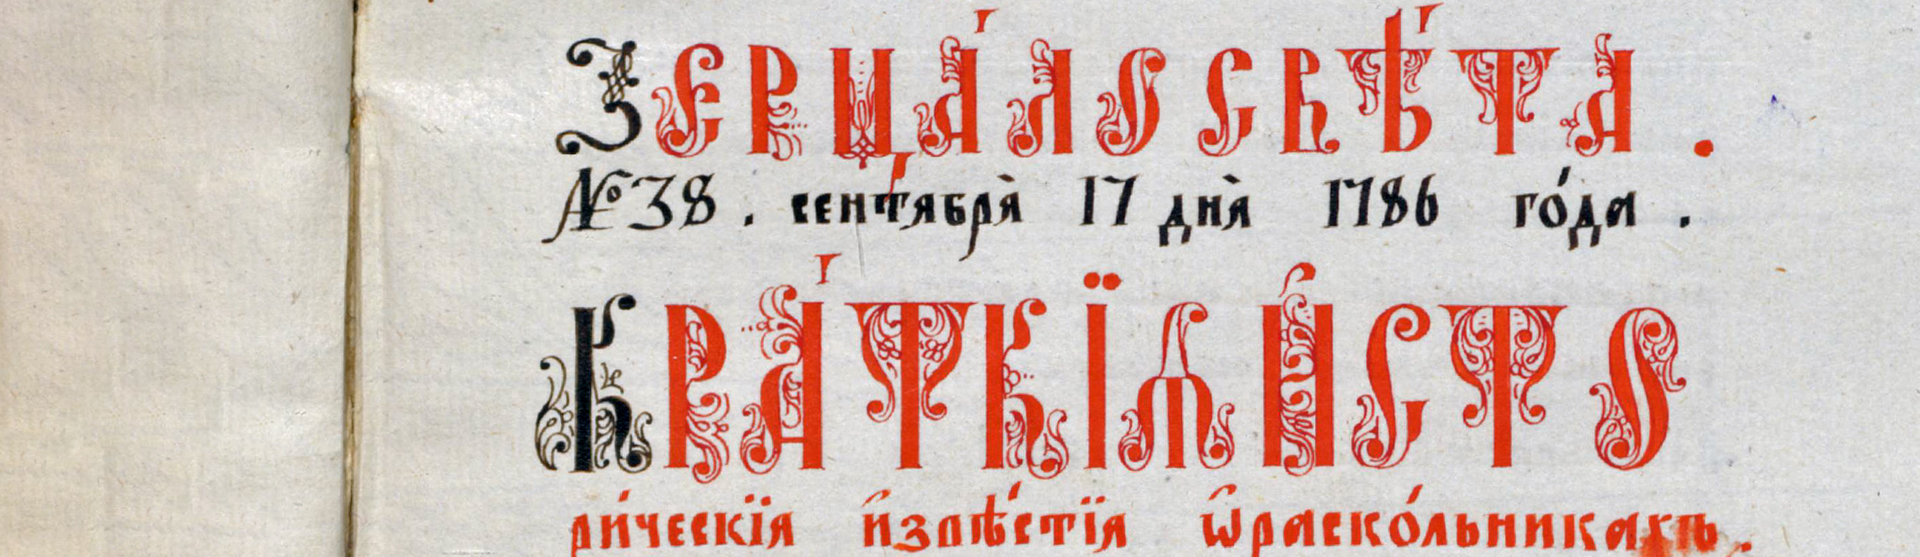 Зерца́ло свѣ́та.
№ 38. сентѧбрѧ̀ 17 днѧ̀ 1786 го́да.
Кра́ткїѧ и҆сто
ри́ческїѧ и҆звѣ́стїѧ ѡ҆ раско́льникахъ.